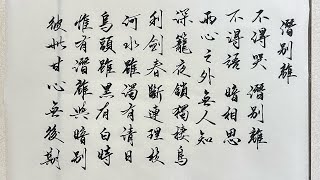 潛別離
不得哭 潛別離
不得語 暗相思
兩心之外無人知
深籠夜鎖獨棲鳥
利劍春斷連理枝
河水雖濁有清日
烏頭雖黑有白時
惟有潛離與暗別
彼此甘心無後期